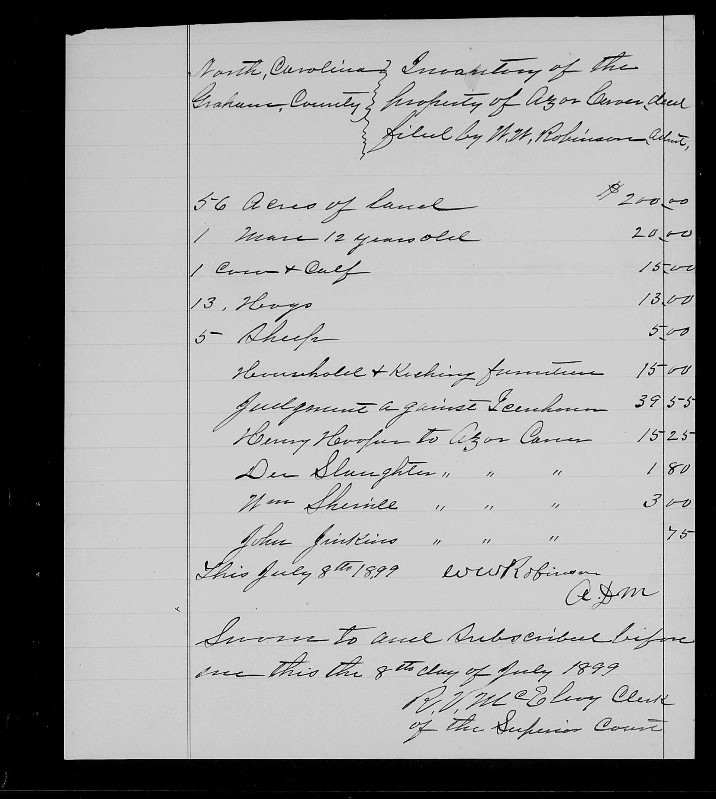 North, Carolina } Invantory of the
Graham, County } property of Azor Carver, decd
filed by W. W. Robinson Admr,
56 Acres of land $200.00
1 Mare 12 years old 20.00
1 Cow & Calf 15.00
13. Hogs 13.00
5 Sheep 5.00
Household & Kiching furniture 15 00
Judgment against Icenhower 39 55
Henry Hooper to Azor Carver 15 25
Dee Slaughter " " " 1 80
Wm Sherrill " " " 3 00
John Jinkins " " " 75
This July 8th 1899 W W Robinson
A.DM
Sworn to and Subscribed before
me this the 8th day of July 1899
R. V. McElroy Clerk
of the Superior Court